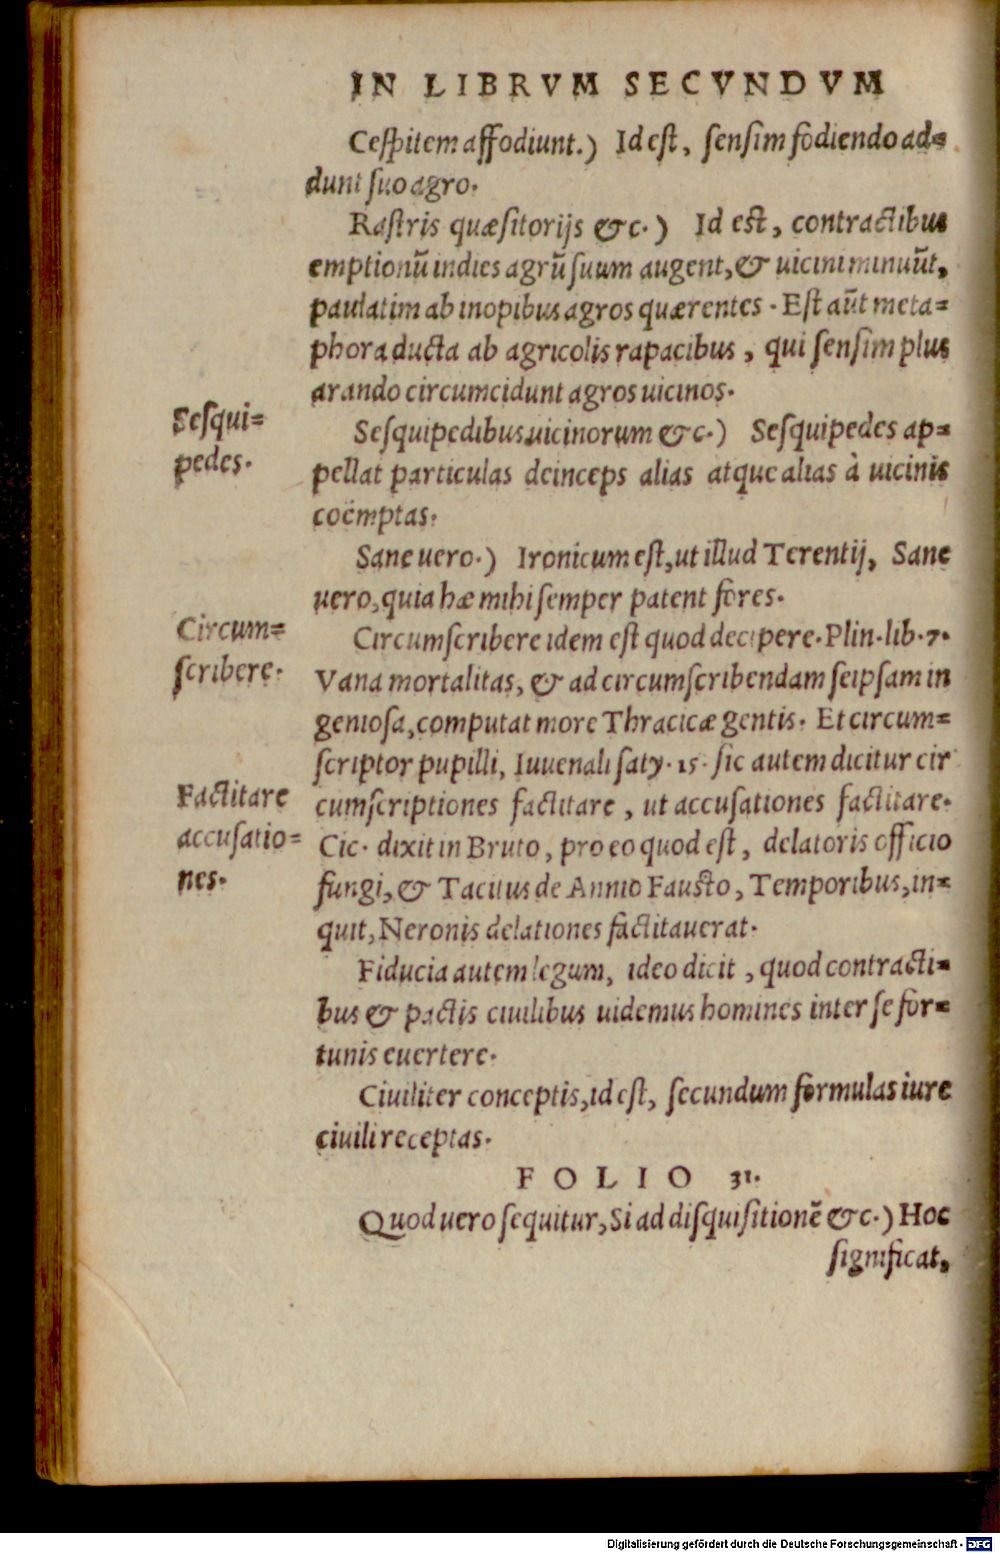 IN LIBRVM SECVNDVM
Cespitem affodiunt.) Id est, sensim fodiendo ad=
dunt suo agro.
Rastris quæsitorijs &c.) Id est, contractibus
emptionũ indies agrũ suum augent, & uicini minuũt,
paulatim ab inopibus agros quærentes. Est aũt meta=
phora ducta ab agricolis rapacibus, qui sensim plus
arando circumcidunt agros uicinos.
Sesqui=
pedes.
Sesquipedibus uicinorum &c.) Sesquipedes ap=
pellat particulas deinceps alias atque alias à uicinis
coëmptas.
Sane uero.) Ironicum est, ut illud Terentij, Sane
uero, quia hæ mihi semper patent fores.
Circum=
scribere.
Circumscribere idem est quod decipere. Plin. lib. 7.
Vana mortalitas, & ad circumscribendam seipsam in
geniosa, computat more Thracicæ gentis. Et circum=
scriptor pupilli, Iuuenali saty. 15. sic autem dicitur cir
Factitare
accusatio=
nes.
cumscriptiones factitare, ut accusationes factitare.
Cic. dixit in Bruto, pro eo quod est, delatoris officio
fungi, & Tacitus de Annio Fausto, Temporibus, in=
quit, Neronis delationes factitauerat.
Fiducia autem legum, ideo dicit, quod contracti=
bus & pactis ciuilibus uidemus homines inter se for=
tunis euertere.
Ciuiliter conceptis, id est, secundum formulas iure
ciuili receptas.
FOLIO 31.
Quod uero sequitur, Si ad disquisitionẽ &c.) Hoc
significat,
Digitalisierung gefördert durch die Deutsche Forschungsgemeinschaft - DFG